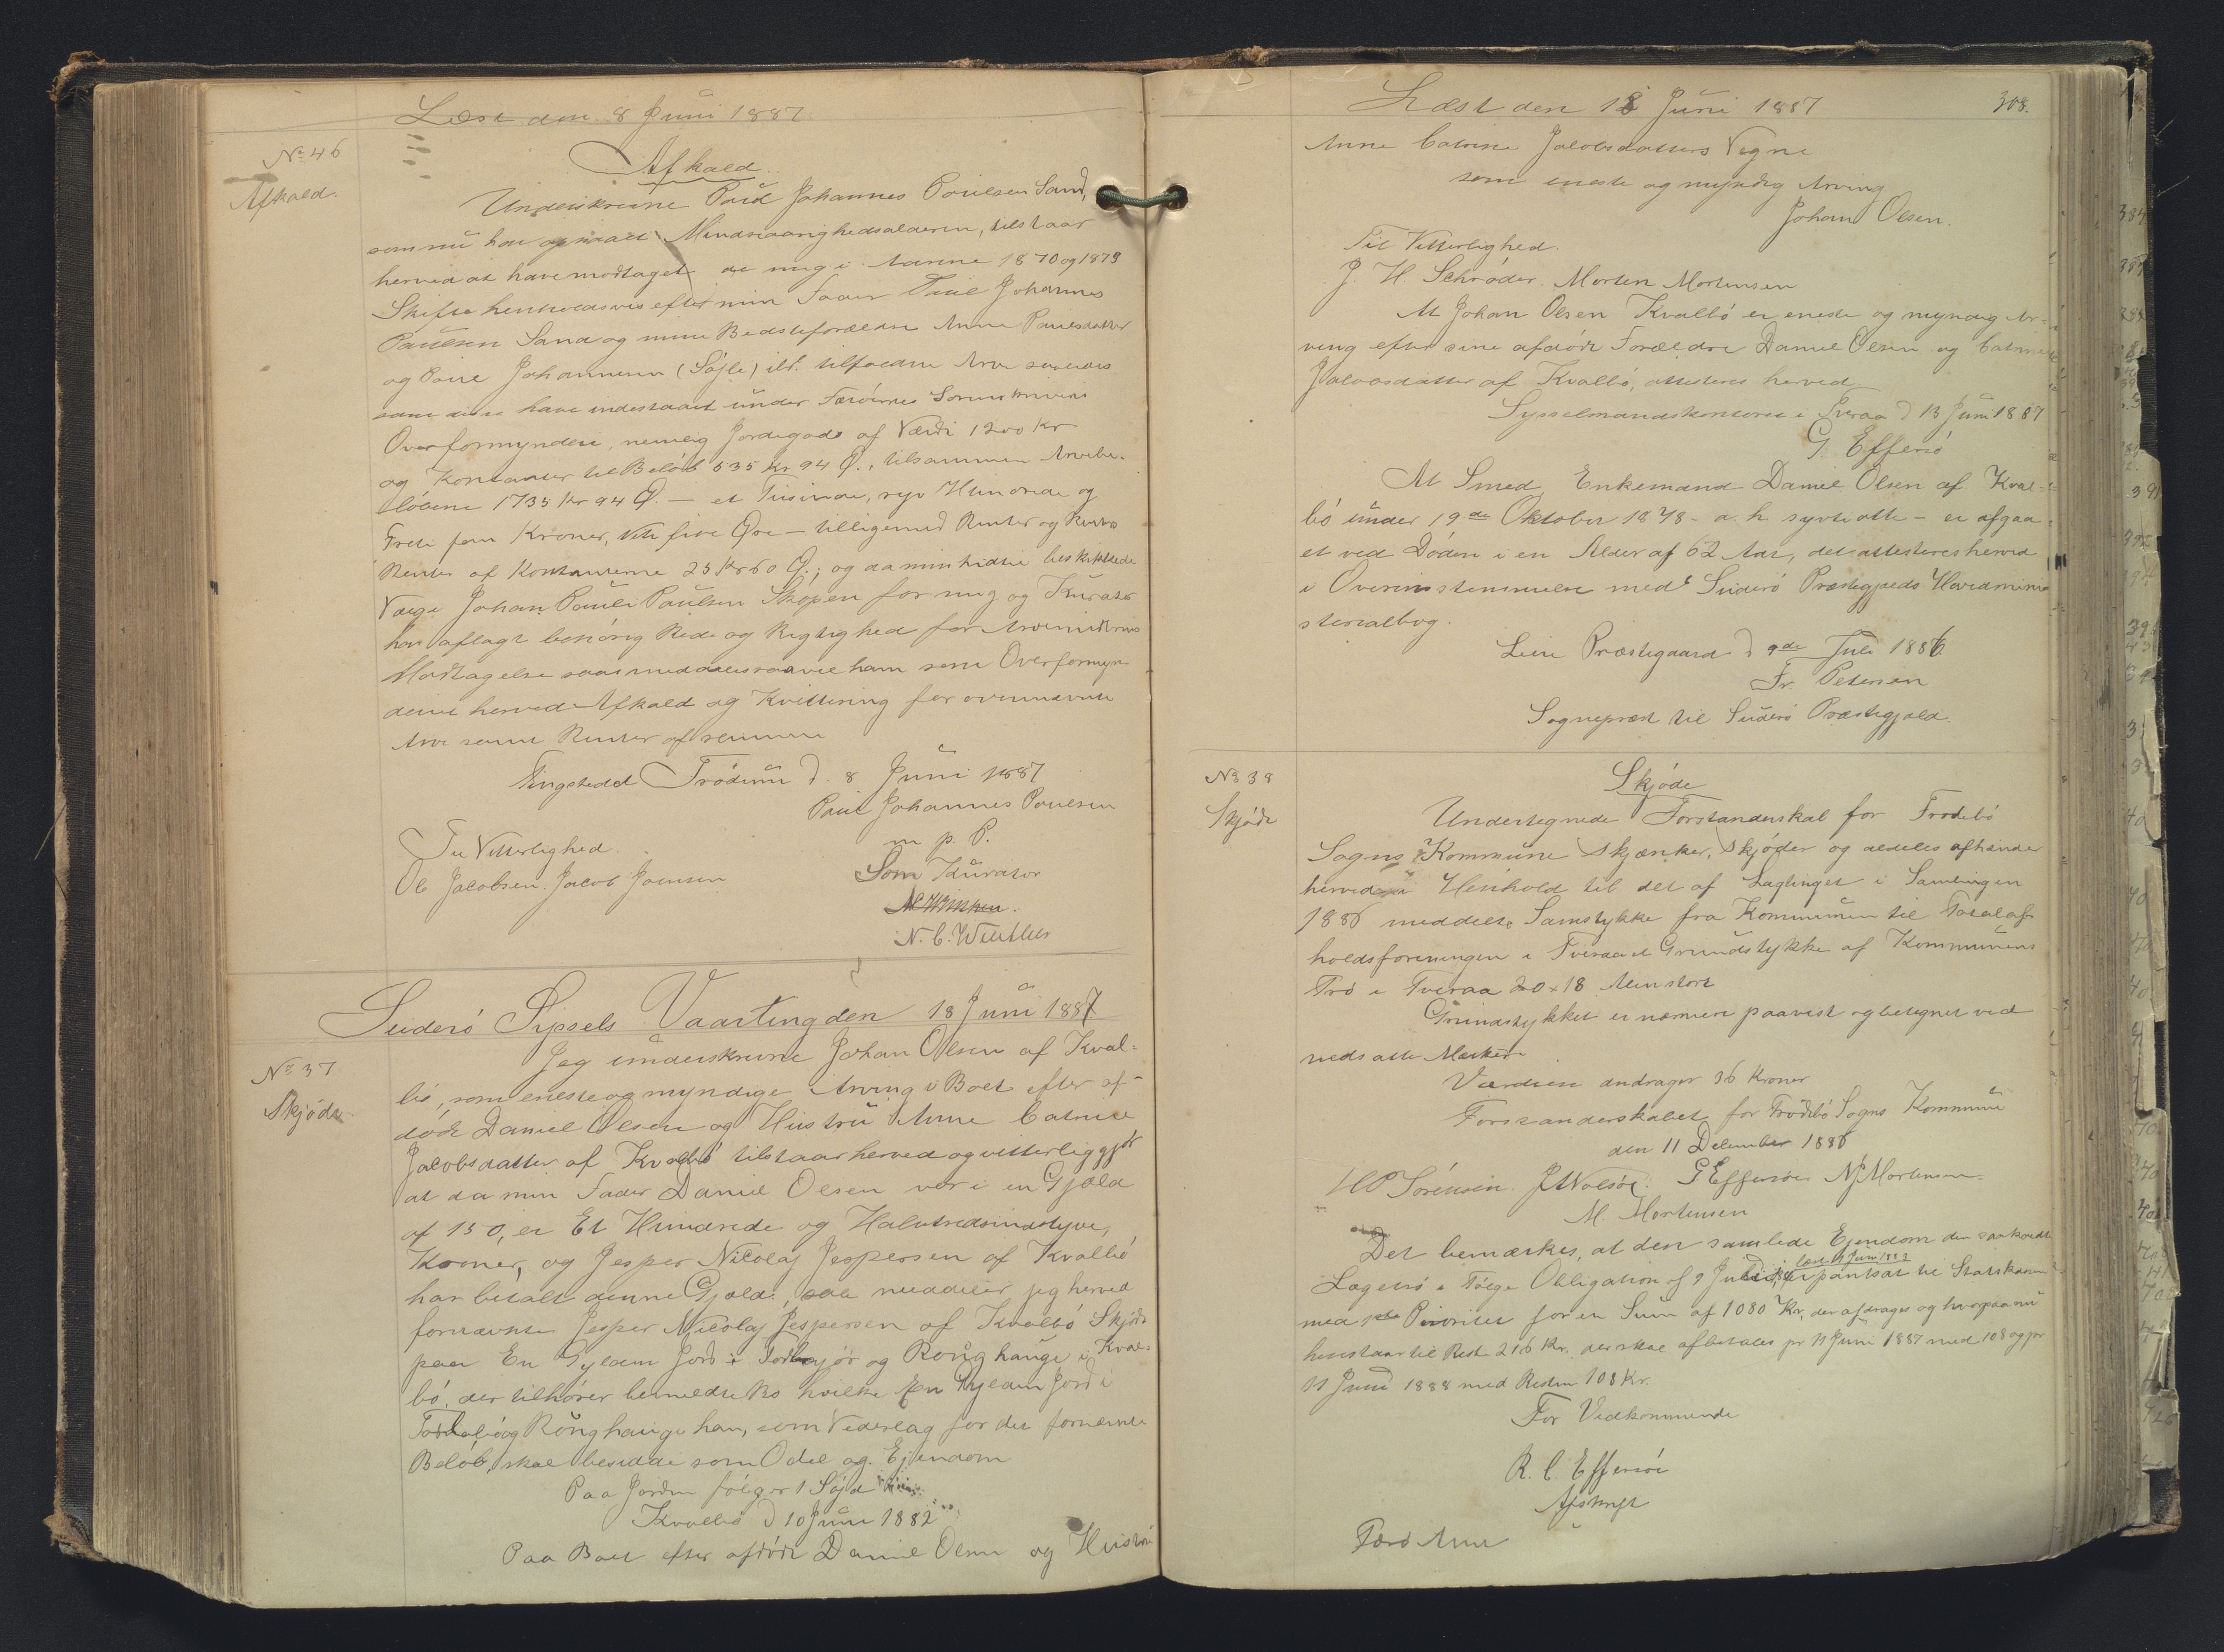 Læst den 8 Juni 1887
No 46
Afkald.
Afkald.
Underskrevne Poul Johannes Poulsen Sand,
som nu har opnaaet Mindreaarighedsalderen, tilstaar
herved at have modtaget de mig i Aarene 1870 og 1879
Skifte henholdsvis efter min Fader Poul Johannes
Paulsen Sand og mine Bedsteforældre Anne Paulsdatter
og Poul Johannesen (Söjle) ibd. tilfaldne Arv saaledes
som disse have indestaaet under Færöernes Sorenskriveri
Overformynderi, nemlig Jordegods af Værdi 1200 Kr
og Kontanter til Belöb 535 Kr 94 Ø., tilsammen Arvebe-
löbene 1735 Kr 94 Ø. — et Tusinde, syv Hundrede og
Treti fem Kroner, fire Øre — tilligemed Renter og Rentes
Renter af Kontanterne 25 Kr 60 Ø.; og da min hidtil beskikkede
Værge Johan Pauli Paulsen Skopen for mig og Kurator
har aflagt behörig Rede og Rigtighed for Arvemidlernes
Modtagelse saa meddeles saavel ham som Overformyn-
deriet herved Afkald og Kvittering for ovennævnte
Arv samt Renter af samme
Tingstedet Trödum d. 8 Juni 1887
Poul Johannes Poulsen
m. p. P.
Til Vitterlighed.
Ol Jacobsen. Jacob Joensen
Som Kurator
N. C. Winther
Suderö Syssels Vaarting den 18 Juni 1887
No 37
Skjöde
Jeg underskrevne Johan Olsen af Kval-
bö, som eneste og myndige Arving i Boet efter af-
döde Daniel Olsen og Hustru Anne Catrine
Jacobsdatter af Kvalbö tilstaar herved og vitterliggjör
at da min Fader Daniel Olsen var i en Gjæld
af 150, er Et Hundrede og Halvtredsindstyve,
Kroner, og Jesper Nicolaj Jespersen af Kvalbö
har betalt denne Gjæld, saa meddeler jeg herved
fornævnte Jesper Nicolaj Jespersen af Kvalbö Skjöde
paa En Gylden Jord i og Rönghauge i Kval-
bö, der tilhörer bemeldte Bo hvilke En Gylden Jord i
og Rönghauge han, som Vederlag for det fornævnte
Belöb, skal besidde som Odel og Ejendom
Paa Jorden fölger 1 Söjd
Kvalbö d 10 Juni 1882
Paa Boet efter afdöde Daniel Olsen og Hustru
Læst den 18 Juni 1887
308.
Anne Catrine Jacobsdatters Vegne
som eneste og myndig Arving
Johan Olsen.
Til Vitterlighed.
J. H. Schröder. Morten Mortensen
At Johan Olsen Kvalbö er eneste og myndig Ar-
ving efter sine afdöde Forældre Daniel Olsen og Catrine
Jacobsdatter af Kvalbö, attesteres herved
Sysselmandskontoret i Tveraa d 13 Juni 1887
G. Effersö
At Smed, Enkemand Daniel Olsen af Kval-
bö under 19de Oktober 1878 - a. h. syvti otte - er afgaa-
et ved Döden i en Alder af 62 Aar, det attesteres herved
i Overensstemmelse med Suderö Præstegjelds Hovedmini-
sterialbog.
Præstegaard d 9de Juli 1886
Fr. Petersen
Sognepræst til Suderö Præstegjæld.
No 38
Skjöde
Skjöde
Undertegnede Forstanderskab for Frodebö
Sogns Kommune skjænker, skjöder og aldeles afhænder
herved i Henhold til det af Lagtinget i Samlingen
1886 meddelte Samtykke fra Kommunen til Totalaf-
holdsforeningen i Tveraa et Grundstykke af Kommunens
Trö i Tveraa 20 x 18 Alen stort
Grundstykket er nærmere paavist og betegnet ved
nedsatte Mærker.
Værdien andrager 36 Kroner
Forstanderskabet for Frodebö Sogns Kommune
den 11 December 1886
HP Sörensen. G Effersöe NJ Mortensen.
M. Mortensen
Det bemærkes, at den samlede Ejendom den saakaldte
læst 11 Juni 1883
i Fölge Obligation af 9 Juni er pantsat til Statskassen
med 1ste Prioritet for en Sum af 1080 Kr, der afdrages og hvorpaa nu
henstaar til Rest 216 Kr. der skal afbetales pr 11 Juni 1887 med 108 og pr
11 Juni 1888 med Resten 108 Kr.
For Vedkommende
R. C. Effersöe
Afskrift